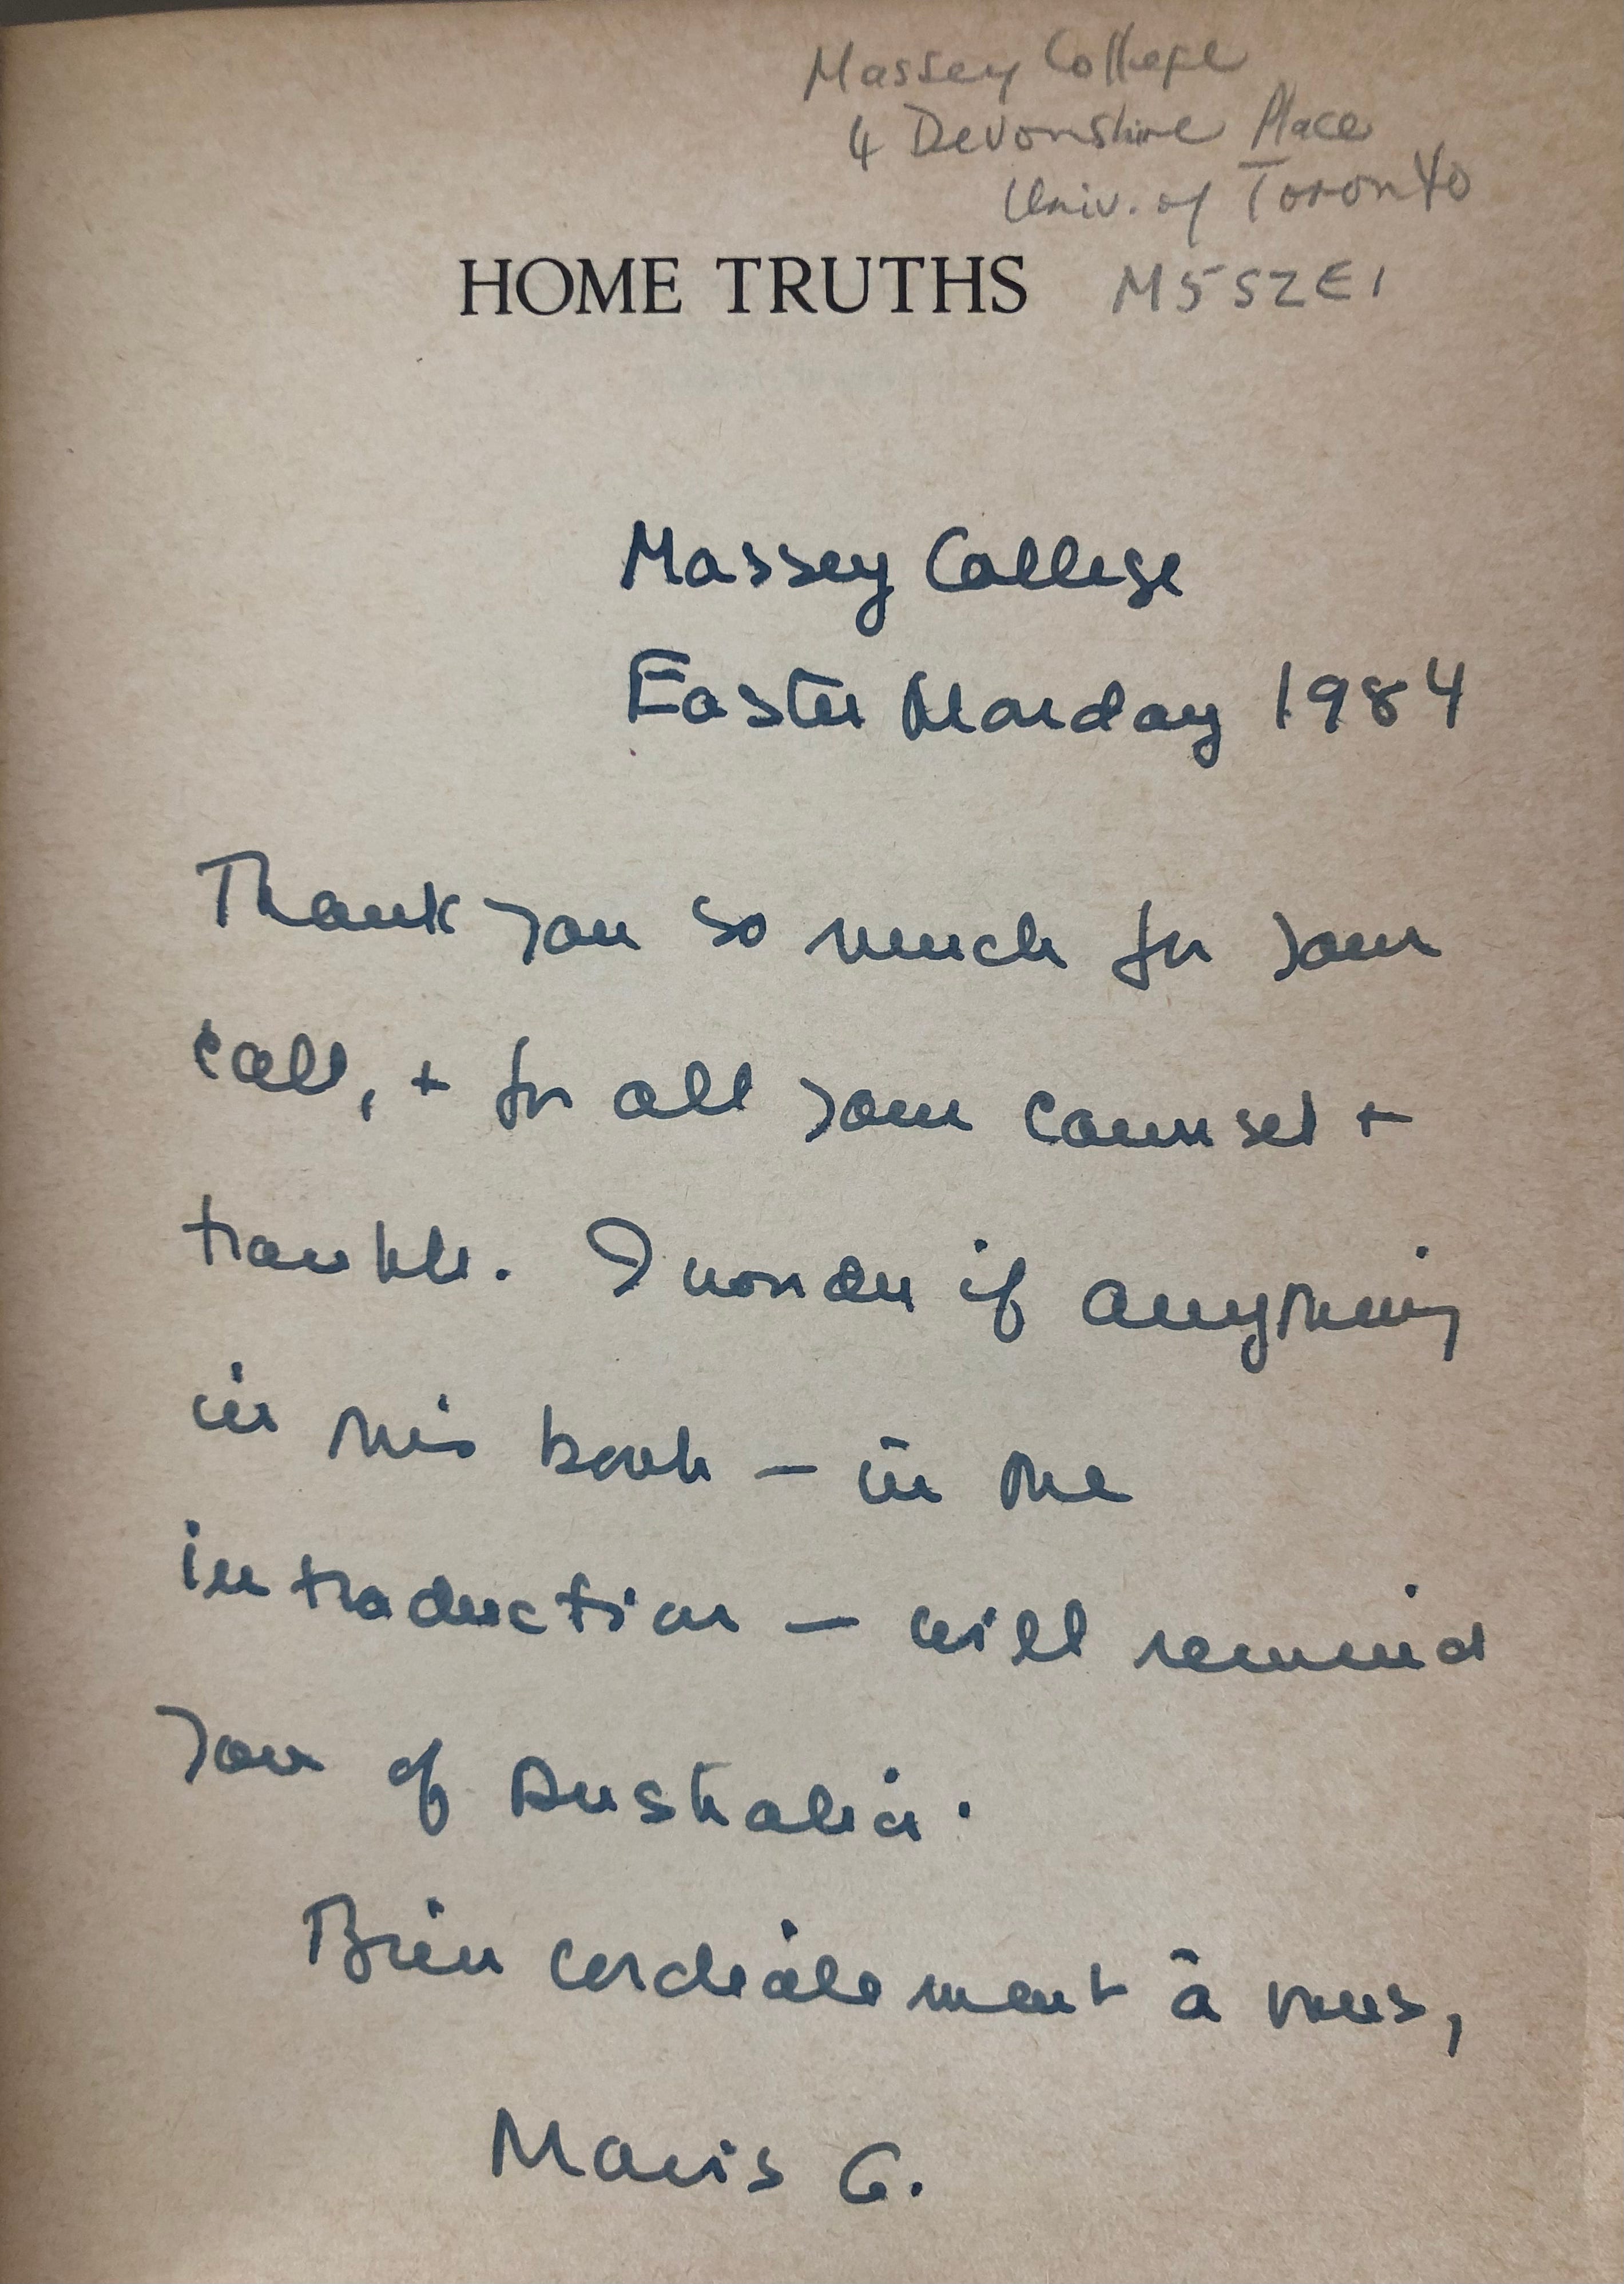 Massey College
4 Devonshire Place
Univ. of Toronto
HOME TRUTHS M5S2E1
Massey College
Easter Monday 1984
Thank you so much for your
call, + for all your counsel +
trouble. I wonder if anything
in this book — in the
introduction — will remind
you of Australia.
Bien cordialement à vous,
Mavis G.